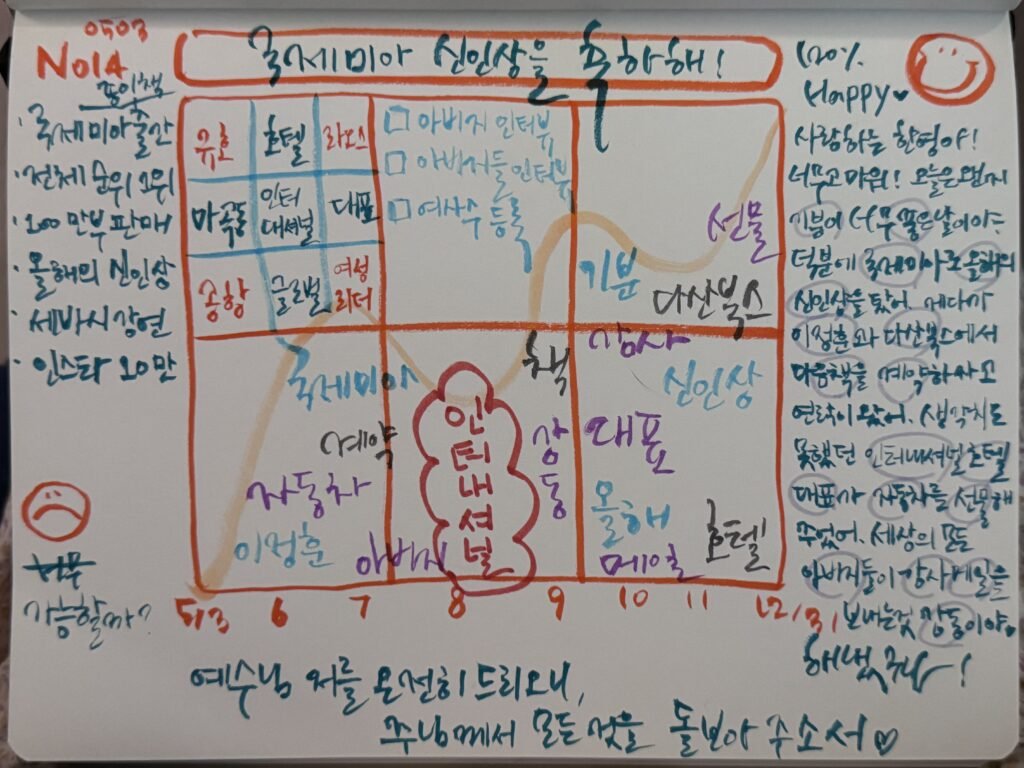 0503
No14
종이책
국제미아 신인상을 축하해!
· 국제미아 출간
· 전체 순위 1위
· 100만부 판매
· 올해의 신인상
· 세바시 강연
· 인스타 20만
너무
가능할까?
유호 호텔 라오스
마곡동 인터내셔널 대표
공항 글로벌 여성리더
□ 아버지 인터뷰
□ 아버지들 인터뷰
□ 여상수 등록
선물
기분
다산북스
국제미아
계약
자동차
이정훈
아버지
인터내셔널
책
감동
감사
신인상
대표
올해
메일
호텔
5/3 6 7 8 9 10 11 12/31
120%
Happy♡
사랑하는 한영아!
너무 고마워! 오늘은 왠지
기분이 너무 좋은 날이야~
덕분에 국제미아로 올해의
신인상을 탔어. 게다가
이정훈과 다산북스에서
다음책을 계약하자고
연락이 왔어. 생각치도
못했던 인터내셔널 호텔
대표가 자동차를 선물해
주었어. 세상의 모든
아버지들이 감사메일을
보내는것 감동이야。
해냈구나!
예수님 저를 온전히 드리오니,
주님께서 모든 것을 돌보아 주소서♡